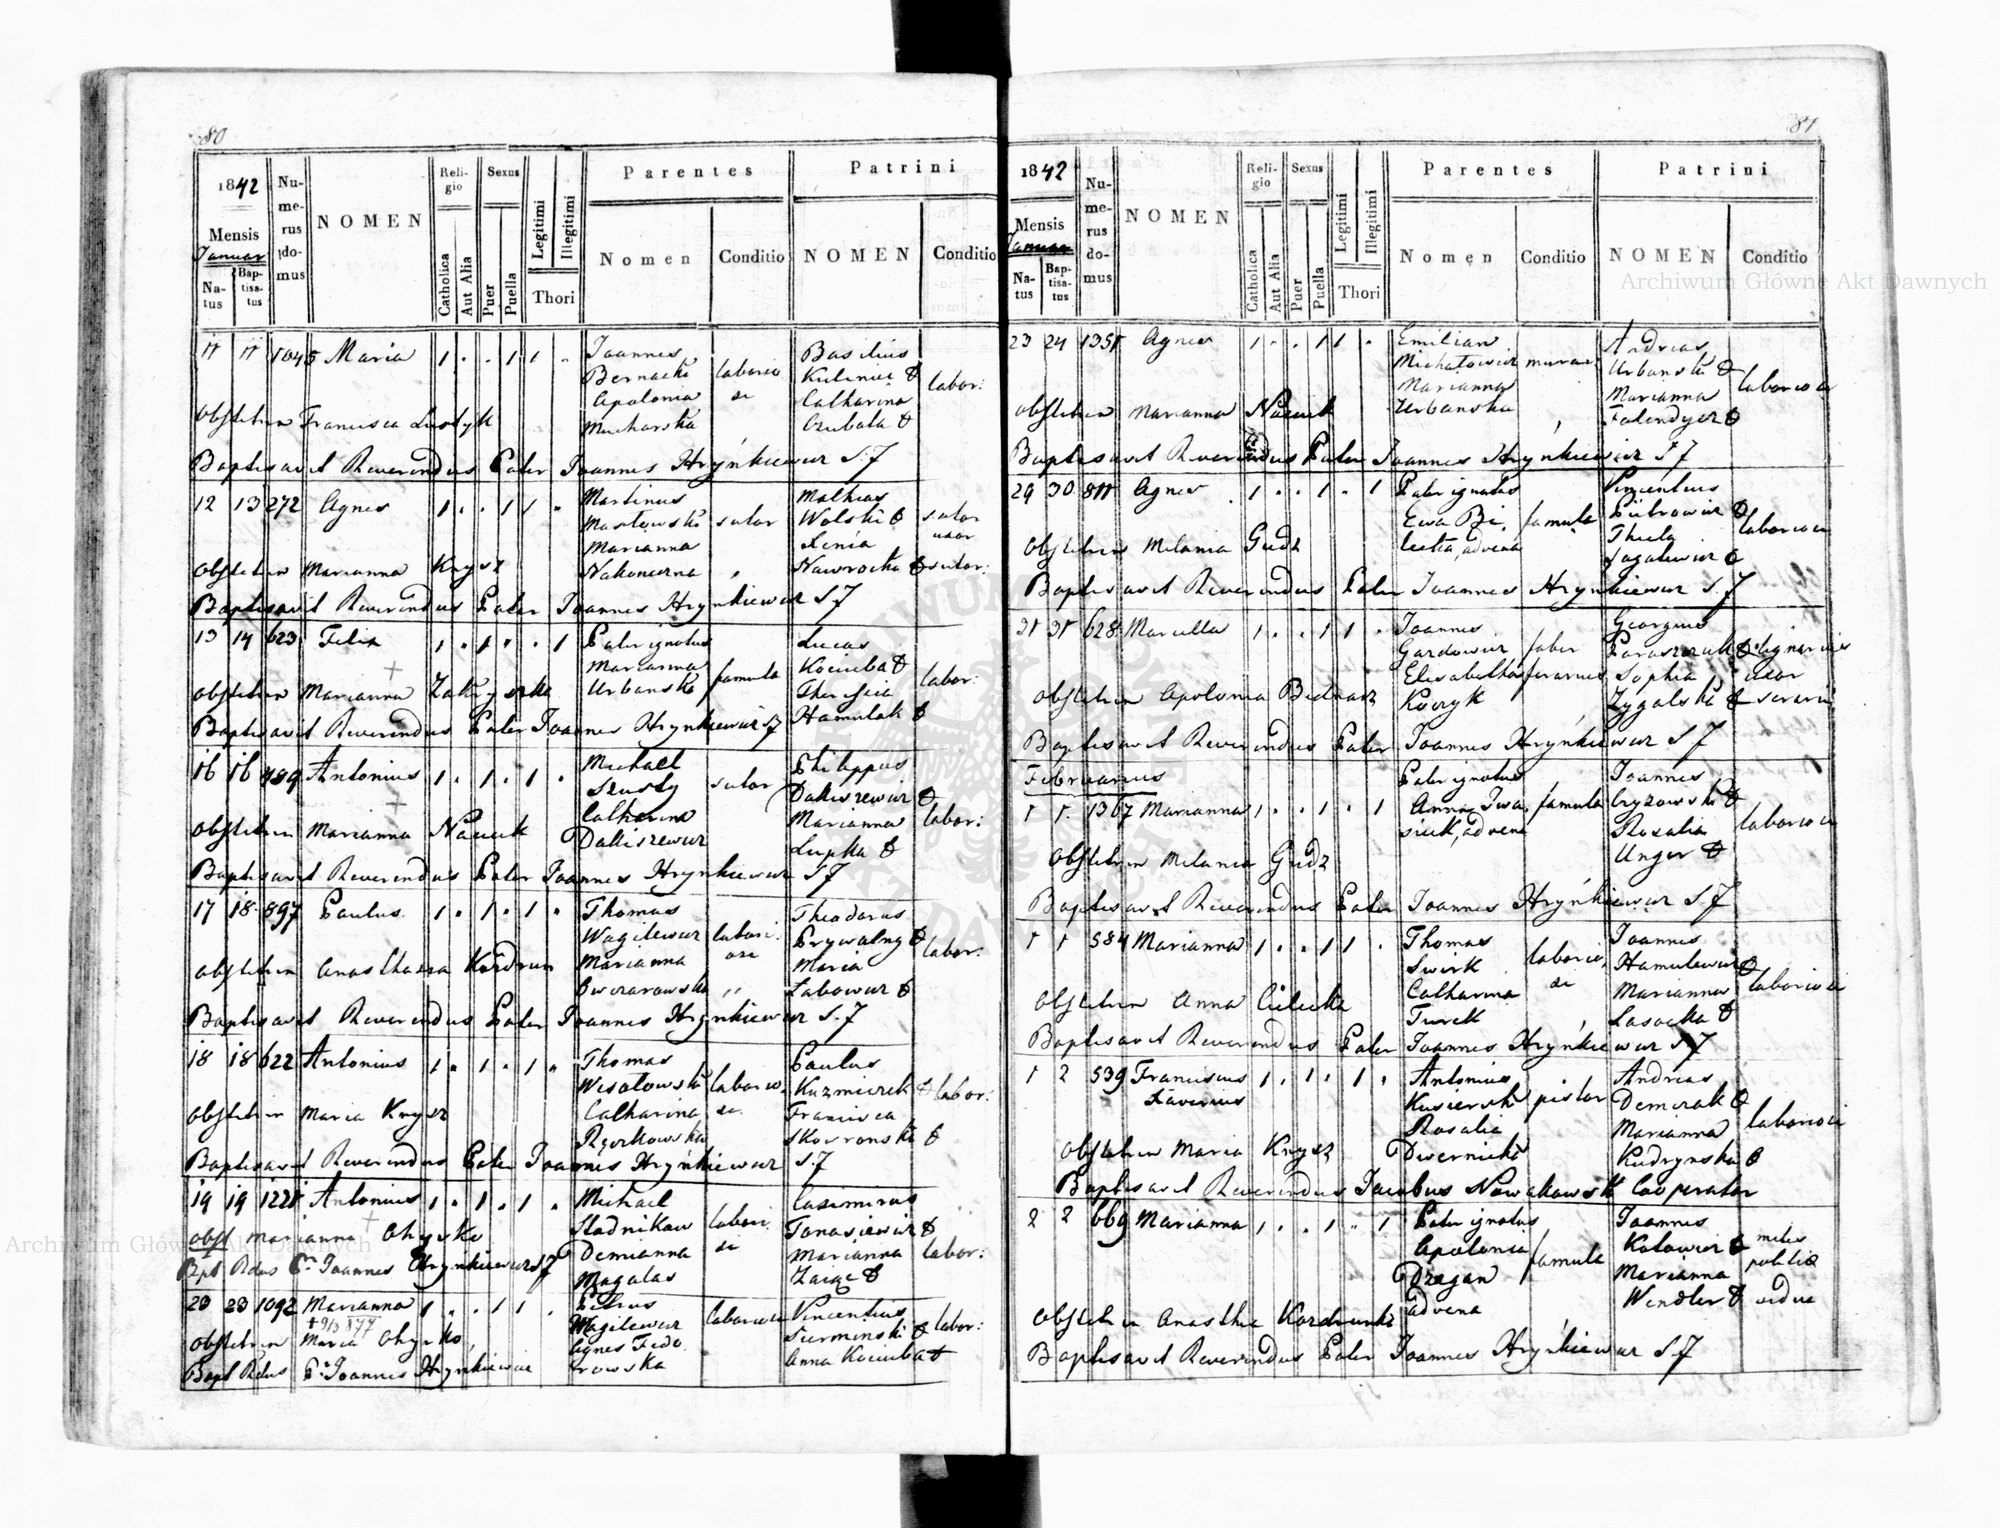 80
1842
Mensis
Januar
Natus
Baptisatus
Numerus domus
NOMEN
Religio
Catholica
Aut Alia
Sexus
Puer
Puella
Legitimi
Illegitimi
Thori
Parentes
Nomen
Conditio
Patrini
NOMEN
Conditio
11 11 1045 Maria 1 . . 1 1 .
Joannes
Bernacki
Apolonia
Mucharska
laborio
si
Basilius
Kulinicz &
Catharina
Czubata &
labor:
Obstetrix Francisca Lustyk
Baptisavit Reverendus Pater Joannes Hryńkiewicz S.J
12 13 272 Agnes 1 . . 1 1 .
Martinus
Masłowski
Marianna
Nakoneczna
sutor
Mathias
Wolski &
Xenia
Nawrocka &
sutor
uxor
sutor:
Obstetrix Marianna Knysz
Baptisavit Reverendus Pater Joannes Hrynkiewicz S J
13 14 623 Felix 1 . 1 . . 1
Pater ignotus
Marianna
Urbanska
famula
Lucas
Kociuba &
Theresia
Hamulak &
labor:
Obstetrix Marianna Zakryska
Baptisavit Reverendus Pater Joannes Hrynkiewicz S J
16 16 489 Antonius 1 . 1 . 1 .
Michael
Szusty
Catharina
Daliszewicz
sutor
Philippus
Daliszewicz &
Marianna
Lupka &
labor:
Obstetrix Marianna Naciuk
Baptisavit Reverendus Pater Joannes Hrynkiewicz S J
17 18 897 Paulus 1 . 1 . 1 .
Thomas
Wagilewicz
Marianna
Owczarowska
labori
osi
Theodorus
Prywalny &
Maria
Labowicz &
labor:
Obstetrix Anasthasia Kordrun
Baptisavit Reverendus Pater Joannes Hrynkiewicz S.J
18 18 622 Antonius 1 . 1 . 1 .
Thomas
Wesołowski
Catharina
Rączkowska
laborio
si
Paulus
Kuzmicrek &
Francisca
Skowronska &
labor:
Obstetrix Maria Knysz
Baptisavit Reverendus Pater Joannes Hrynkiewicz S.J
19 19 1221 Antonius 1 . 1 . 1 .
Michael
Stadnikow
Demianna
Magalas
labori
si
Casimirus
Tanasiewicz &
Marianna
Zaiąc &
labor:
Obst Marianna Chysko
Bapt Rdus Pr Joannes Hrynkiewicz S J
23 23 1092 Marianna 1 . . 1 1 .
Petrus
Wagilewicz
Agnes Fedo
rowska
laboriosi
Vincentius
Surminski &
Anna Kociuba &
labor:
Obstetrix Maria Chysko
Bapt Rdus Pr Joannes Hrynkiewicz
81
1842
Mensis
Januar
Natus
Baptisatus
Numerus domus
NOMEN
Religio
Catholica
Aut Alia
Sexus
Puer
Puella
Legitimi
Illegitimi
Thori
Parentes
Nomen
Conditio
Patrini
NOMEN
Conditio
23 24 1351 Agnes 1 . . 1 1 .
Emilian
Michałowicz
Marianna
Urbanska
murar
Andreas
Urbanski &
Marianna
Falendysz &
laboriosi
Obstetrix Marianna Naciuk
Baptisavit Reverendus Pater Joannes Hrynkiewicz S J
29 30 811 Agnes 1 . . 1 . 1
Pater ignotus
Ewa Bi
lecka, advena
famula
Vincentius
Pietrowicz &
Thecla
Jagalewicz &
laboriosi
Obstetrix Melania Gudz
Baptisavit Reverendus Pater Joannes Hrynkiewicz S.J
31 31 628 Marcella 1 . . 1 1 .
Joannes
Gardowicz
Elisabetha
Koczyk
faber
ferarius
Georgius
Paraszczuk &
Sophia
Zygalska &
lignarius
uxor
serarii
Obstetrix Apolonia Bednarz
Baptisavit Reverendus Pater Joannes Hrynkiewicz S J
Februarius
1 1 1367 Marianna 1 . . 1 . 1
Pater ignotus
Anna Iwa
siuk, advena
famula
Joannes
Cryzowski &
Rosalia
Unger &
laboriosi
Obstetrix Melania Gudz
Baptisavit Reverendus Pater Joannes Hryńkiewicz S.J
1 1 584 Marianna 1 . . 1 1 .
Thomas
Swirk
Catharina
Turek
laborio
si
Joannes
Hamulewicz &
Marianna
Lasocka &
laboriosi
Obstetrix Anna Cielecka
Baptisavit Reverendus Pater Joannes Hryńkiewicz S J
1 2 539 Franciscus 1 . 1 . 1 .
Xaverius
Antonius
Kusierski
Rosalia
Dwernicka
pistor
Andreas
Demczak &
Marianna
Kudrynska &
laboriosi
Obstetrix Maria Knysz
Baptisavit Reverendus Jacobus Nowakowski Cooperator
2 2 669 Marianna 1 . . 1 . 1
Pater ignotus
Apolonia
Dragan
advena
famula
Joannes
Kotowicz &
Marianna
Wendler &
miles
politiae
vidua
Obstetrix Anasthasia Kordrunka
Baptisavit Reverendus Pater Joannes Hryńkiewicz S J
Archiwum Główne Akt Dawnych
Archiwum Główne Akt Dawnych